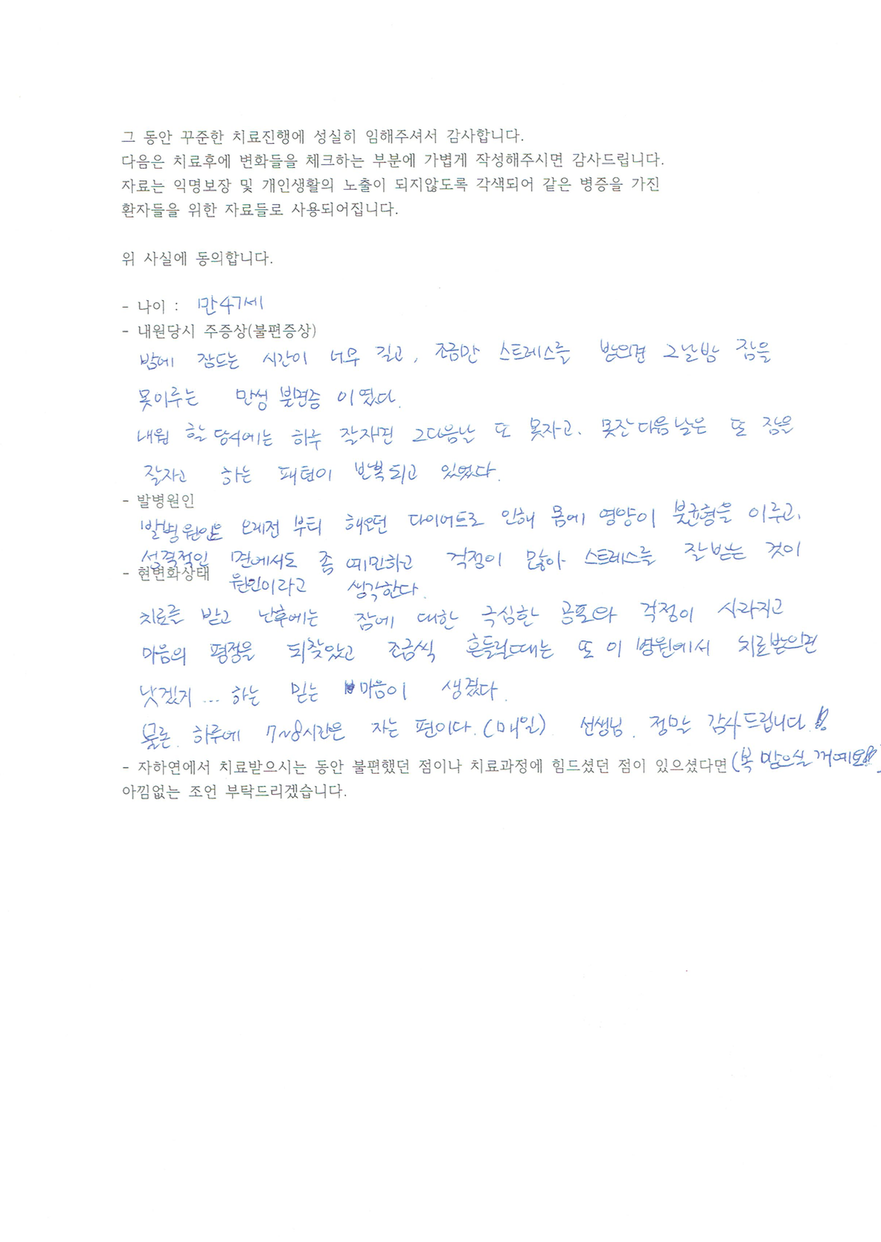 그 동안 꾸준한 치료진행에 성실히 임해주셔서 감사합니다.
다음은 치료후에 변화들을 체크하는 부분에 가볍게 작성해주시면 감사드립니다.
자료는 익명보장 및 개인생활의 노출이 되지않도록 각색되어 같은 병증을 가진
환자들을 위한 자료들로 사용되어집니다.
위 사실에 동의합니다.
- 나이 : 만47세
- 내원당시 주증상(불편증상)
밤에 잠드는 시간이 너무 길고, 조금만 스트레스를 받으면 그날밤 잠을
못이루는 만성 불면증 이였다.
내원 할 당시에는 하루 잘자면 그다음날 또 못자고. 못잔다음날은 또 잠을
잘자고 하는 패턴이 반복되고 있었다.
- 발병원인
발병원인은 오래전 부터 해오던 다이어트로 인해 몸에 영양이 불균형을 이루고,
성격적인 면에서도 좀 예민하고 걱정이 많아 스트레스를 잘받는 것이
원인이라고 생각한다.
- 현변화상태
치료를 받고 난후에는 잠에 대한 극심한 공포와 걱정이 사라지고
마음의 평정을 되찾았고 조금씩 흔들릴때는 또 이 병원에서 치료받으면
낫겠지... 하는 믿는 마음이 생겼다.
물론 하루에 7~8시간은 자는 편이다. (매일) 선생님. 정말 감사드립니다!!
- 자하연에서 치료받으시는 동안 불편했던 점이나 치료과정에 힘드셨던 점이 있으셨다면 (복 많으실 꺼예요!!)
아낌없는 조언 부탁드리겠습니다.